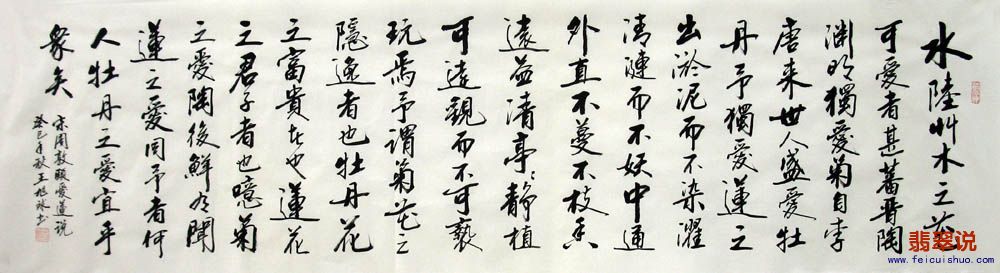 水陸艸木之花
可愛者甚蕃晋陶
渊明獨愛菊自李
唐来世人盛愛牡
丹予獨愛蓮之
出淤泥而不染濯
清漣而不妖中通
外直不蔓不枝香
遠益清亭々静植
可遠觀而不可褻
玩焉予謂菊花之
隱逸者也牡丹花
之富貴者也蓮花
之君子者也噫菊
之愛陶後鮮有聞
蓮之愛同予者何
人牡丹之愛宜乎
衆矣
宋周敦頤愛蓮说
癸巳年秋王旭书
翡翠说
www.feicuishuo.com